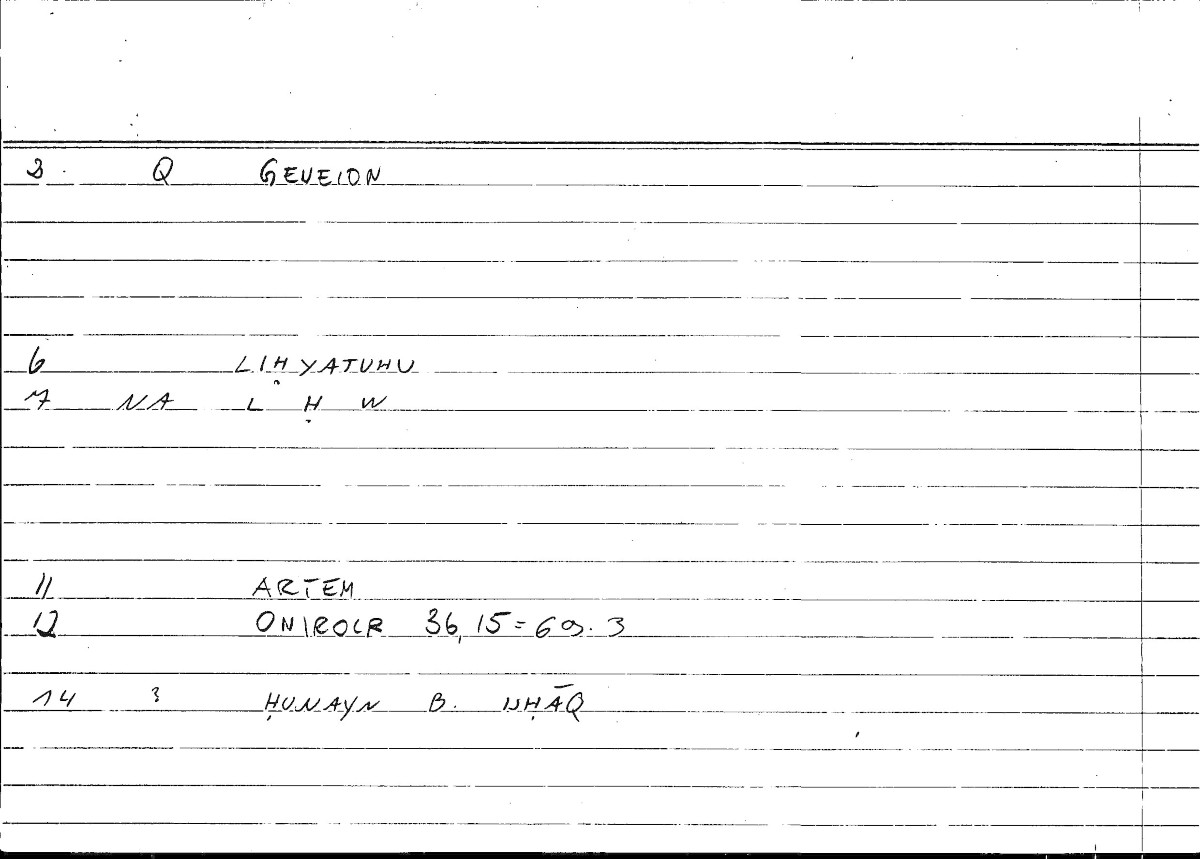 3. Q GEVEION
6 LIḤYATUHU
7 NA L Ḥ W
11 ARTEM
12 ONIROCR 36,15=69.3
14 3 ḤUNAYN B. ISḤĀQ